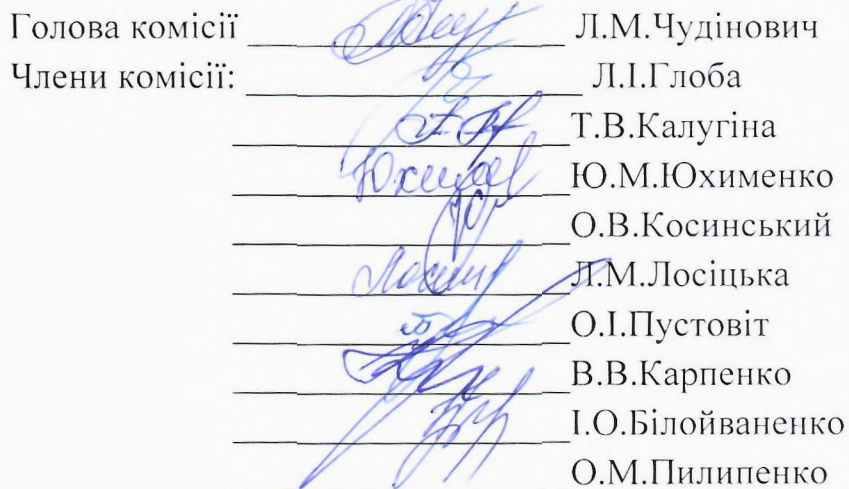 Голова комісії Л.М.Чудінович
Члени комісії: Л.І.Глоба
Т.В.Калугіна
Ю.М.Юхименко
О.В.Косинський
Л.М.Лосіцька
О.І.Пустовіт
В.В.Карпенко
І.О.Білойваненко
О.М.Пилипенко